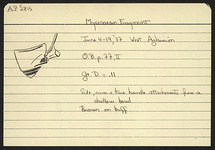 AP 2815
Mycenaean Fragment
June 4-19, '37 West
O.B. p. 77, II
Gr. D. : .11
Side, rim & two handle attachments from a
shallow bowl
Brown on buff.